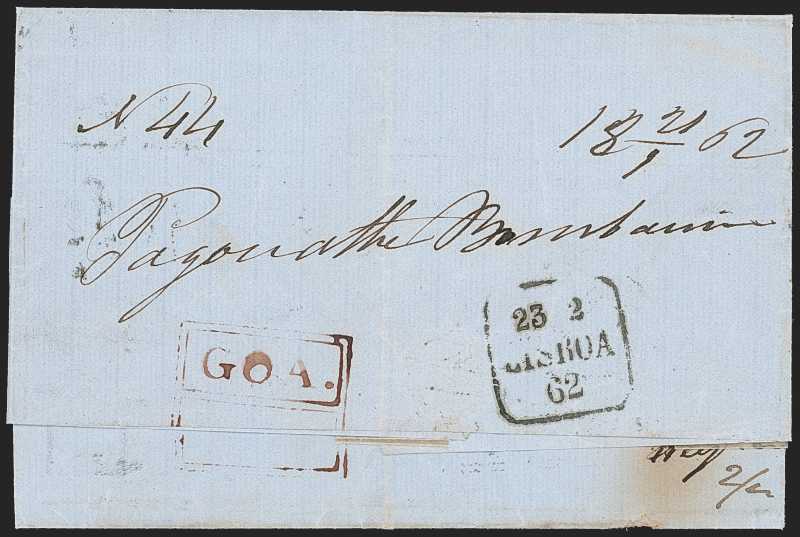 N 44
18 21/1 62
Pago no athe Bombaim
23 2
LISBOA
62
GOA.